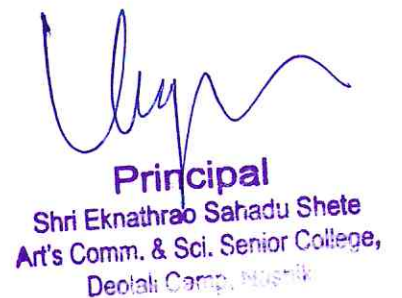 Principal
Shri Eknathrao Sahadu Shete
Art's Comm. & Sci. Senior College,
Deolali Camp, Nashik